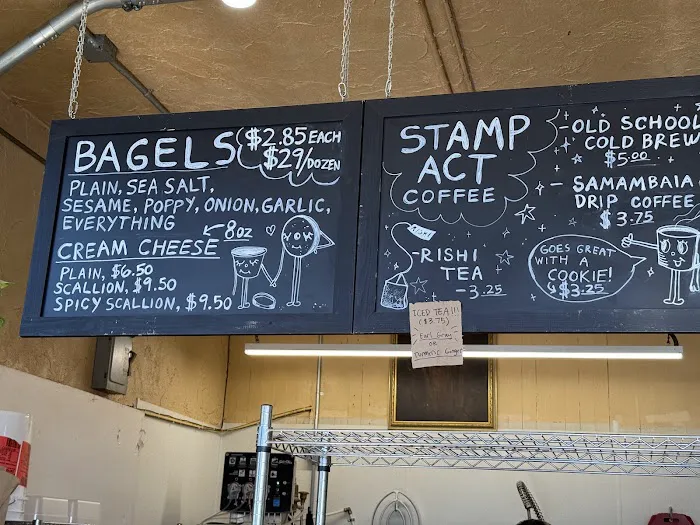 BAGELS
$2.85 EACH
$29/DOZEN
PLAIN, SEA SALT,
SESAME, POPPY, ONION, GARLIC,
EVERYTHING
CREAM CHEESE
8oz
PLAIN, $6.50
SCALLION, $9.50
SPICY SCALLION, $9.50
STAMP
ACT
COFFEE
-RISHI
TEA
-3.25
-OLD SCHOOL
COLD BREW
$5.00
- SAMAMBAIA
DRIP COFFEE
$3.75
GOES GREAT
WITH A
COOKIE!
$3.25
ICED TEA!!!
($3.75)
Earl Grey
OR
Turmeric Ginger